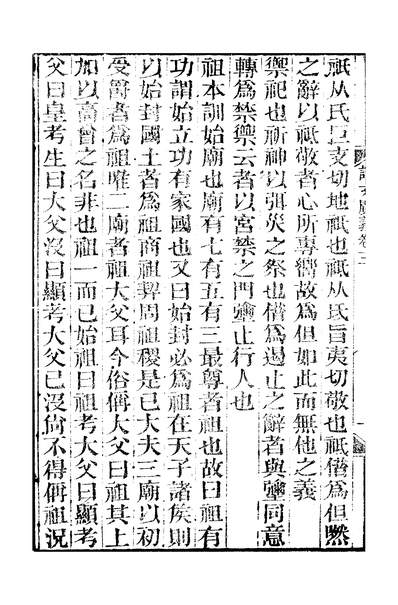 祇从氏巨支切地祇也祗从氐旨夷切敬也祇借為但然
之辭以祗敬者心所專嚮故為但如此而無他之義
禦祀也祈神以弭災之祭也借為遏止之辭者與同意
轉為禁禦云者以宮禁之門止行人也
祖本訓始廟也廟有七有五有三最尊者祖也故曰祖有
功謂始立功有家國也又曰始封必為祖在天子諸侯則
以始封國土者為祖商祖契周祖稷是已大夫三廟以初
受爵者為祖唯二廟者祖大父耳今俗偁大父曰祖其上
加以高曾之名非也祖一而已始祖曰祖考大父曰顯考
父曰皇考生曰大父沒曰顯考大父已沒尚不得偁祖況